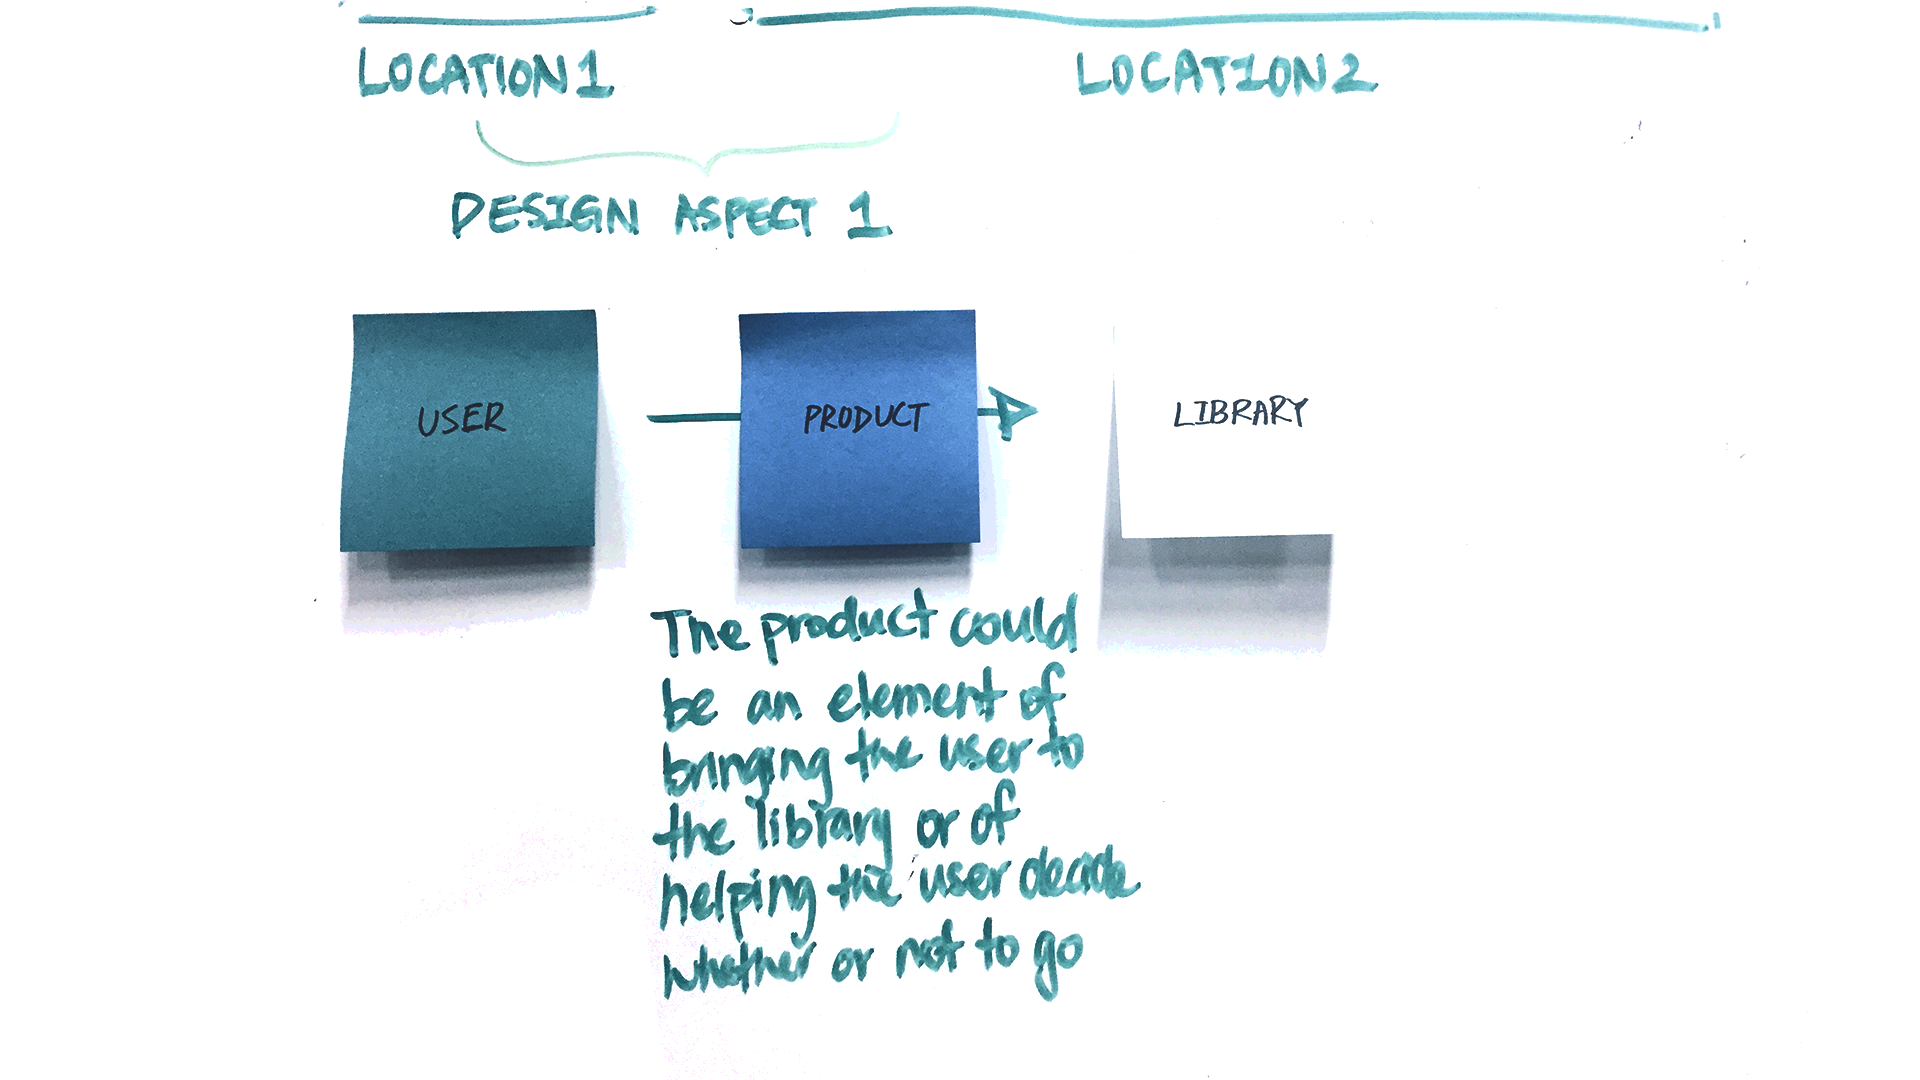 LOCATION1
LOCATION2
DESIGN ASPECT 1
USER
PRODUCT
LIBRARY
The product could
be an element of
bringing the user to
the library or of
helping the user decide
whether or not to go